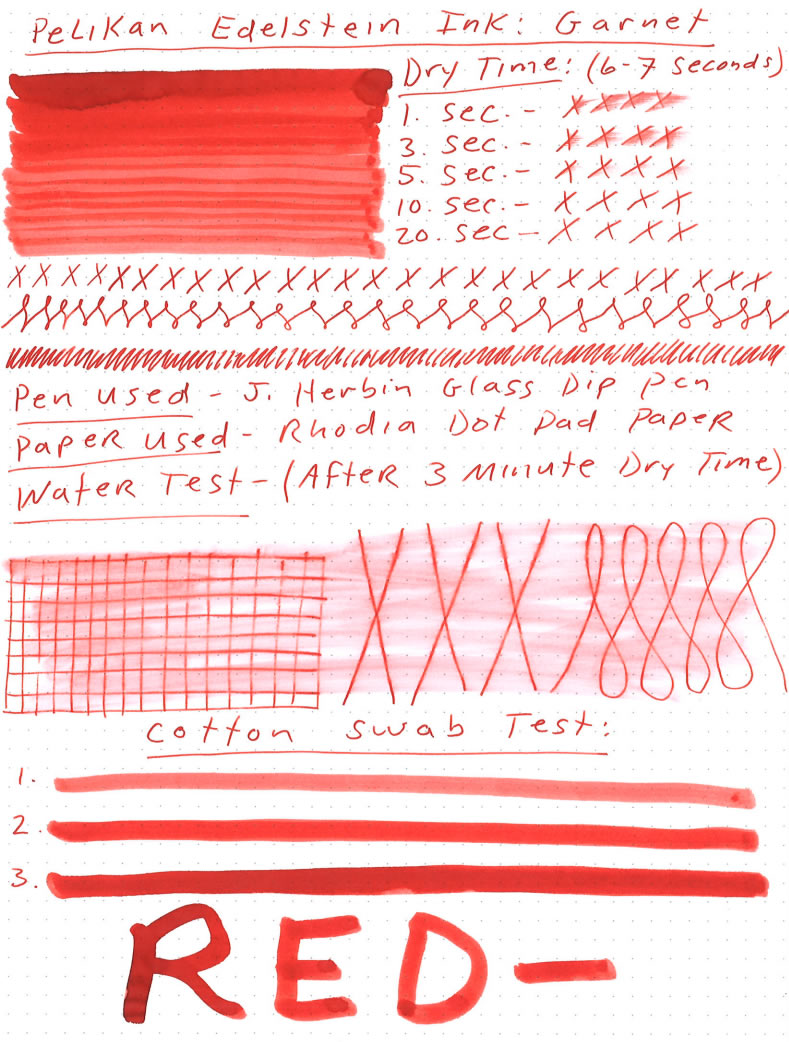 Pelikan Edelstein Ink: Garnet
Dry Time: (6-7 seconds)
1. sec. - x x x x
3 sec. - x x x x
5. sec. - x x x x
10. sec. - x x x x
20. sec - x x x x
x x x x x x x x x x x x x x x x x x x x x x x x x x x
Pen used - J. Herbin Glass Dip Pen
Paper used - Rhodia Dot Pad Paper
Water Test - (After 3 Minute Dry Time)
Cotton Swab Test:
1.
2.
3.
RED-